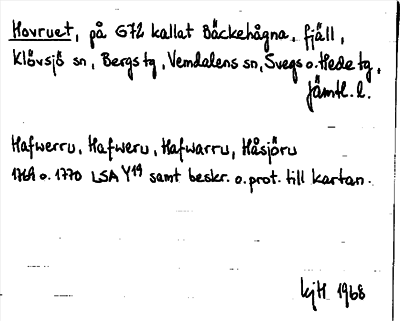 Hovruet, på G72 kallat Bäckehågna, fjäll,
Klövsjö sn, Bergs tg, Vemdalens sn, Svegs o. Hede tg,
Jämtl. l.
Hafwerru, Hafweru, Hafwarru, Håsjöru
1769 o. 1770 LSA Y19 samt beskr. o. prot. till kartan.
1968